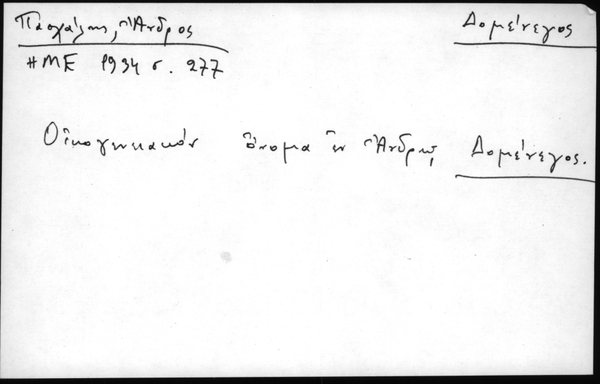 Πασχάλης, Ἄνδρος Δομένεγος
ΗΜΕ 1934 σ. 277
Οἰκογενειακόν ὄνομα ἐν Ἄνδρῳ Δομένεγος.